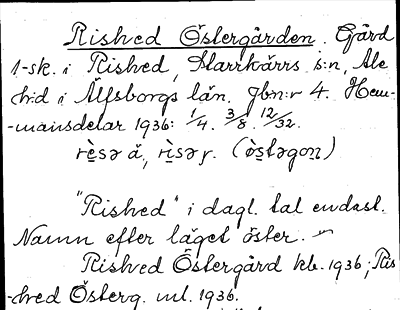 Rished Östergården. Gård
1-sk. i Rished, Starrkärrs s:n, Ale
h:d i Älfsborgs län. Jbn:r 4. Hem-
-mansdelar 1936: 1/4. 3/8. 12/32.
rèsə å, rìsəɼ. (òstəgoṇ)
"Rished" i dagl. tal endast.
Namn efter läget öster.
Rished Östergård kb. 1936; Ris-
-hed Österg. ml. 1936.